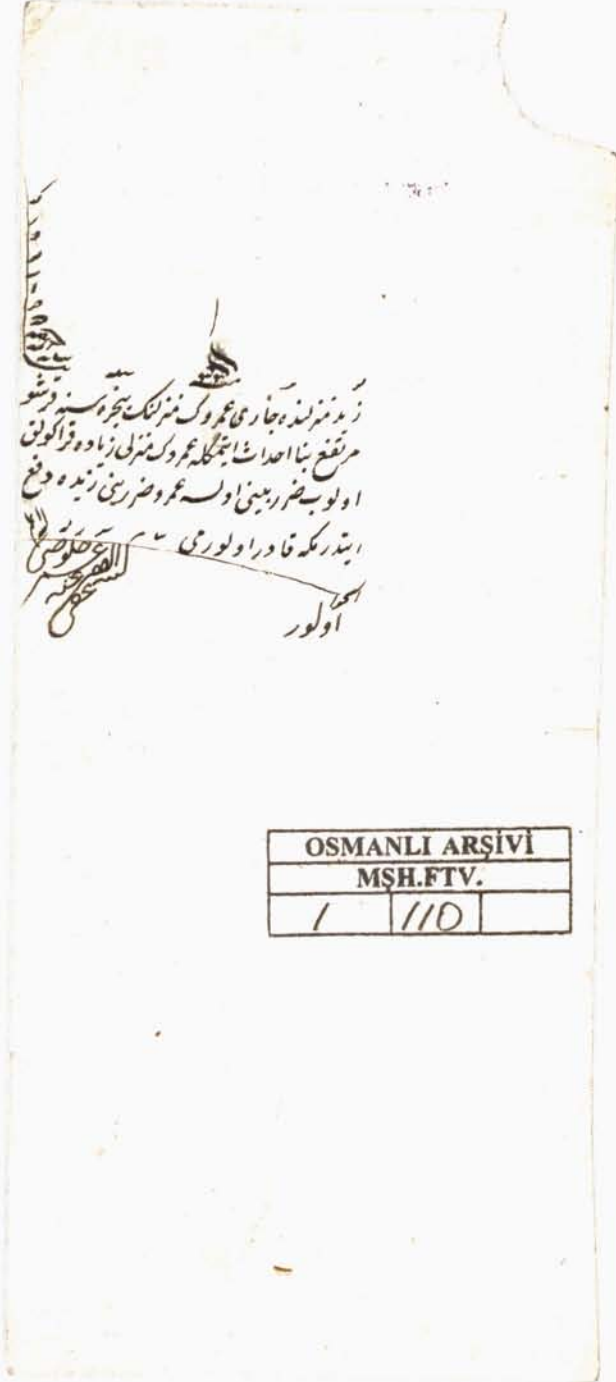 زيد منزلنده جارى عمروك منزلنك پنجره سنه قرشو
مرتفع بنا احداث ايتمكله عمروك منزلى زياده قراكولق
اولوب ضرر بينى اولسه عمرو ضررينى زيده دفع
ايتدرمكه قادر اولورمى
الجواب
اولور
OSMANLI ARŞİVİ
MŞH.FTV.
1 110